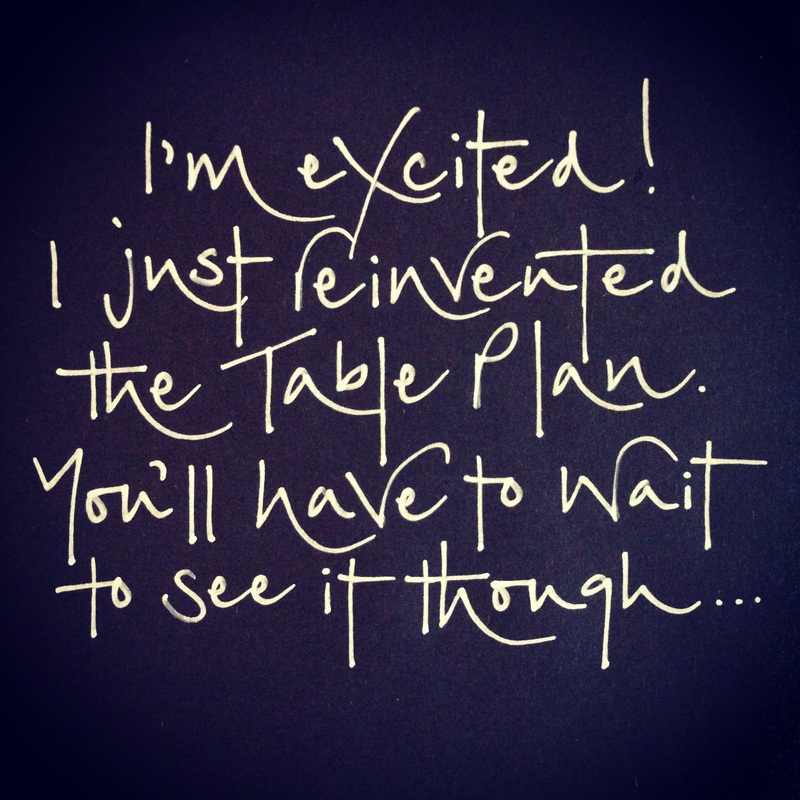 I'm excited!
I just reinvented
the Table Plan.
You'll have to wait
to see it though...